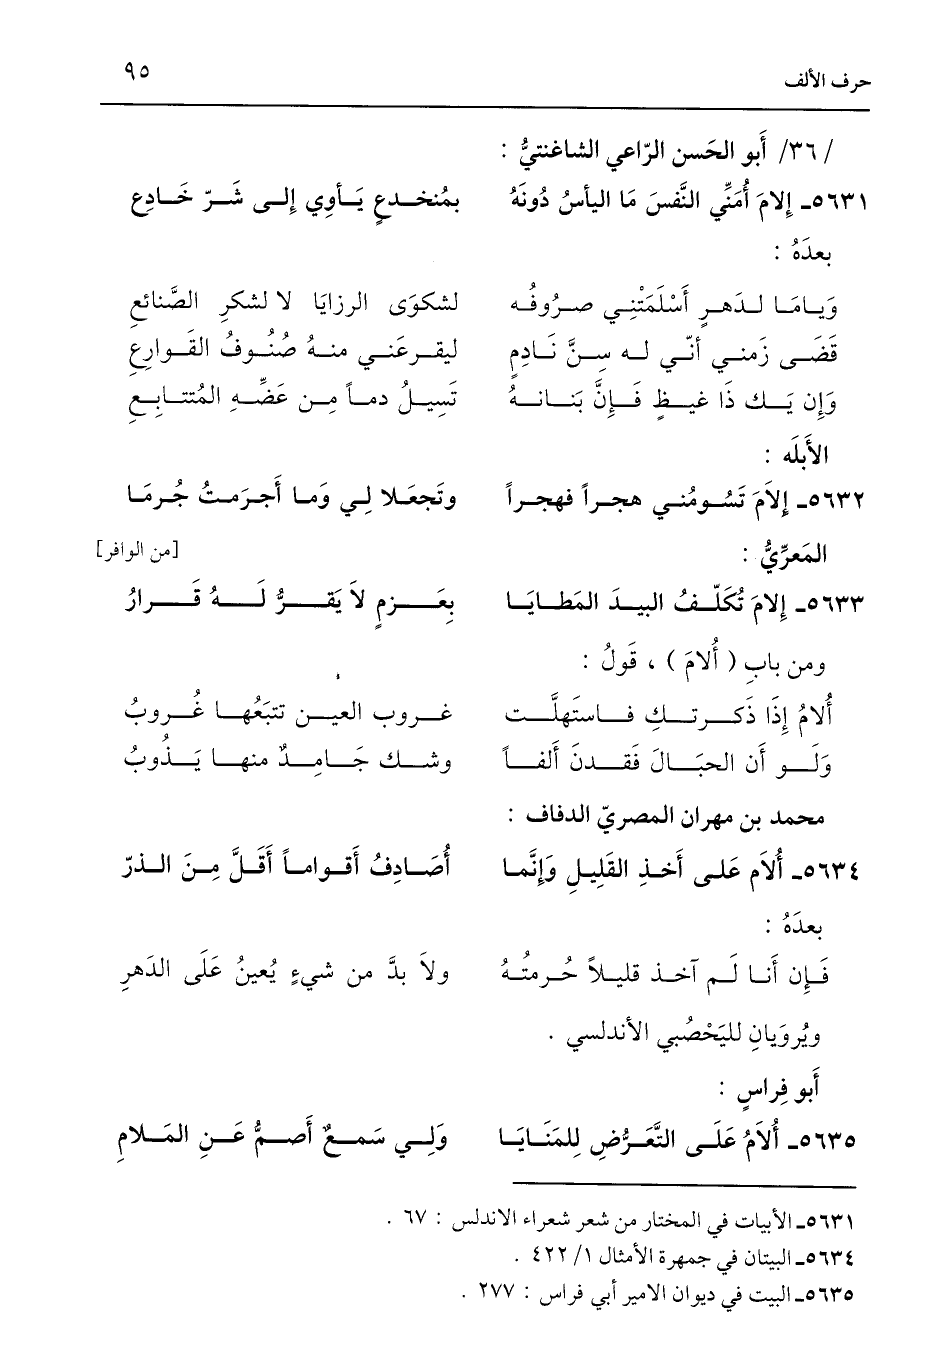 حرف الألف ٩٥
/ ٣٦/ أَبو الحَسن الرّاعي الشاغنتيُّ :
٥٦٣١ـ إِلامَ أُمَنِّي النَّفسَ مَا اليأسُ دُونَهُ بمُنخـدعٍ يَـأوِي إلـى شَـرّ خَـادِعِ
بعدَهُ :
وَيـامَـا لـدَهـرٍ أَسْلَمَتْنِـي صـرُوفُـه لشكوَى الرزايَا لا لشكرِ الصَّنائعِ
قَضَـى زَمنـي أنّـي لـه سِـنَّ نَـادِمٍ ليقـرعَنـي منـهُ صُنُـوفُ القَـوارِعِ
وَإن يَـك ذَا غيـظٍ فَـإنَّ بَنـانـهُ تَسِيـلُ دمـاً مِـن عَضِّـهِ المُتتـابـعِ
الأَبلَه :
٥٦٣٢ـ إِلاَمَ تَسُـومُنـي هجـراً فهجـراً وتَجعَـلا لِـي وَمـا أَجـرَمـتُ جُـرمَـا
المَعرِّيُّ : [من الوافر]
٥٦٣٣ـ إِلامَ تُكَلِّـفُ البيـدَ المَطـايَـا بِعَـزمٍ لاَ يَقـرُّ لَـهُ قَـرارُ
ومن بابِ ( أُلامَ ) ، قَولُ :
أُلامُ إِذَا ذَكـرتـكِ فـاستهلَّـت غـروب العيـن تتبَعُهـا غُـروبُ
وَلَـو أن الجبَـالَ فَقـدنَ أَلفـاً وشـك جَـامـدٌ منهـا يَـذُوبُ
محمد بن مهران المصريّ الدفاف :
٥٦٣٤ـ أُلاَم عَلـى أَخـذِ القَلِيـلِ وَإنَّمـا أُصَـادِفُ أَقـوامـاً أَقَلَّ مِـنَ الـذرّ
بعدَهُ :
فَـإن أَنـا لَـم آخـذ قليـلاً حُـرمتُـهُ ولاَ بدَّ من شيءٍ يُعينُ عَلَى الدَهرِ
ويُروَيانِ لليَحْصُبي الأندلسي .
أَبو فِراسٍ :
٥٦٣٥ـ أُلاَمُ عَلَـى التَّعَـرُّضِ لِلمَنَـايَـا وَلِـي سَمـعٌ أَصـمُّ عَـنِ المَـلامِ
٥٦٣١ـ الأبيات في المختار من شعر شعراء الاندلس : ٦٧ .
٥٦٣٤ـ البيتان في جمهرة الأمثال ١/ ٤٢٢ .
٥٦٣٥ـ البيت في ديوان الامير أبي فراس : ٢٧٧ .